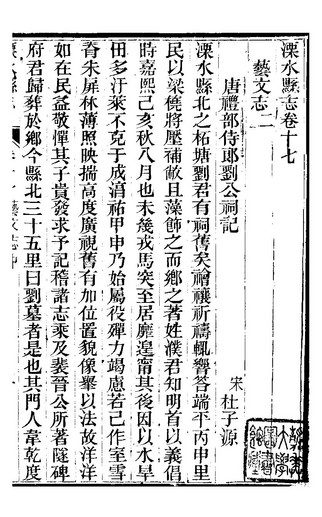 溧水縣志卷十七
藝文志二
唐禮部侍郎劉公祠記
宋 杜子源
溧水縣北之柘塘劉君有祠舊矣禬禳祈禱輒響答端平丙申里
民以梁橈將壓補敝且藻飾之而鄉之著姓濮君知明首以義倡
時嘉熙己亥秋八月也未幾戎馬突至居靡遑甯其後因以水旱
田多汙萊不克于成淳祐甲申乃始屬役殫力竭慮若己作室雪
脊朱屏林薄照映揣高度廣視舊有加位置貌像舉以法故洋洋
如在民益敬憚其子貴發求予記稽諸志乘及裴晉公所著隧碑
府君歸葬於鄉今縣北三十五里曰劉墓者是也其門人韋乾度